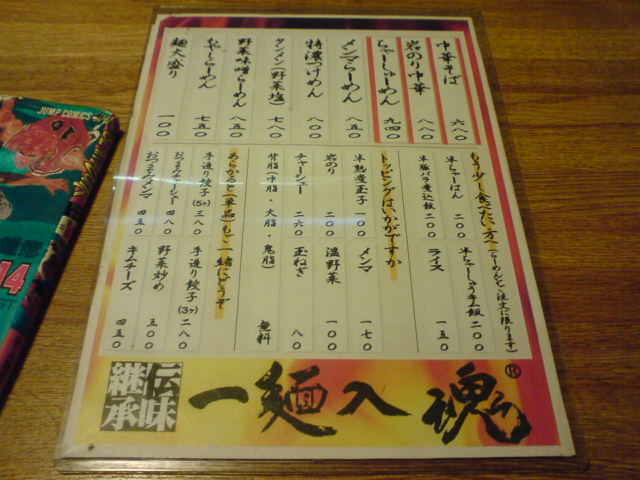 中華そば 六八〇
岩のり中華 八八〇
ちゃーしゅーめん 九四〇
メンマらーめん 八五〇
特濃つけめん 八〇〇
タンメン(野菜塩) 七八〇
野菜味噌らーめん 八五〇
もやしらーめん 七五〇
麺大盛り 一〇〇
もう少し食べたい方へ(らーめんをご注文に限ります)
半ちゃーはん 二〇〇
半ちゃーしゅうキム飯 二〇〇
半豚バラ煮込飯 二〇〇
ライス 一五〇
トッピングはいかがですか
半熟煮玉子 一〇〇
メンマ 一七〇
岩のり 二〇〇
温野菜 一〇〇
チャーシュー 二六〇
玉ねぎ 八〇
背脂(中脂・大脂・鬼脂) 無料
あらかると(単品)もご一緒にどうぞ
手造り餃子(5ヶ) 三八〇
手造り餃子(3ヶ) 二八〇
おつまみチャーシュー 四八〇
野菜炒め 五〇〇
おつまみメンマ 四五〇
キムチーズ 四五〇
伝味継承
一麺入魂®
JUMP COMICS
14